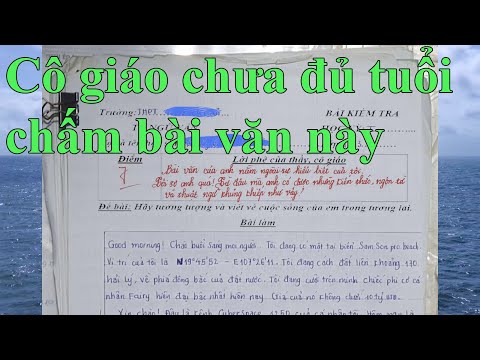 Cô giáo chưa đủ tuổi
chấm bài văn này
Trường: THPT
BÀI KIỂM TRA
Điểm
Lời phê của thầy, cô giáo
7
Bài văn của anh nằm ngoài sự hiểu biết của tôi.
Tôi sợ anh quá! Từ đâu mà anh có được những kiến thức, ngôn từ
và thuật ngữ phong phú như vậy!
Đề bài: Hãy tưởng tượng và viết về cuộc sống của em trong tương lai.
Bài làm
Good morning! Chào buổi sáng mọi người. Tôi đang có mặt tại biển Sầm Sơn pro beach.
Vị trí của tôi là N19°45'52 - E107°26'11. Tôi đang cách đất liền khoảng 170
hải lý, về phía đông bắc của đất nước. Tôi đang cưỡi trên mình chiếc phi cơ cá
nhân Fairy hiện đại bậc nhất hiện nay. Giá của nó không dưới 10 tỷ
Xin chào! Đây là kênh Cyberspace